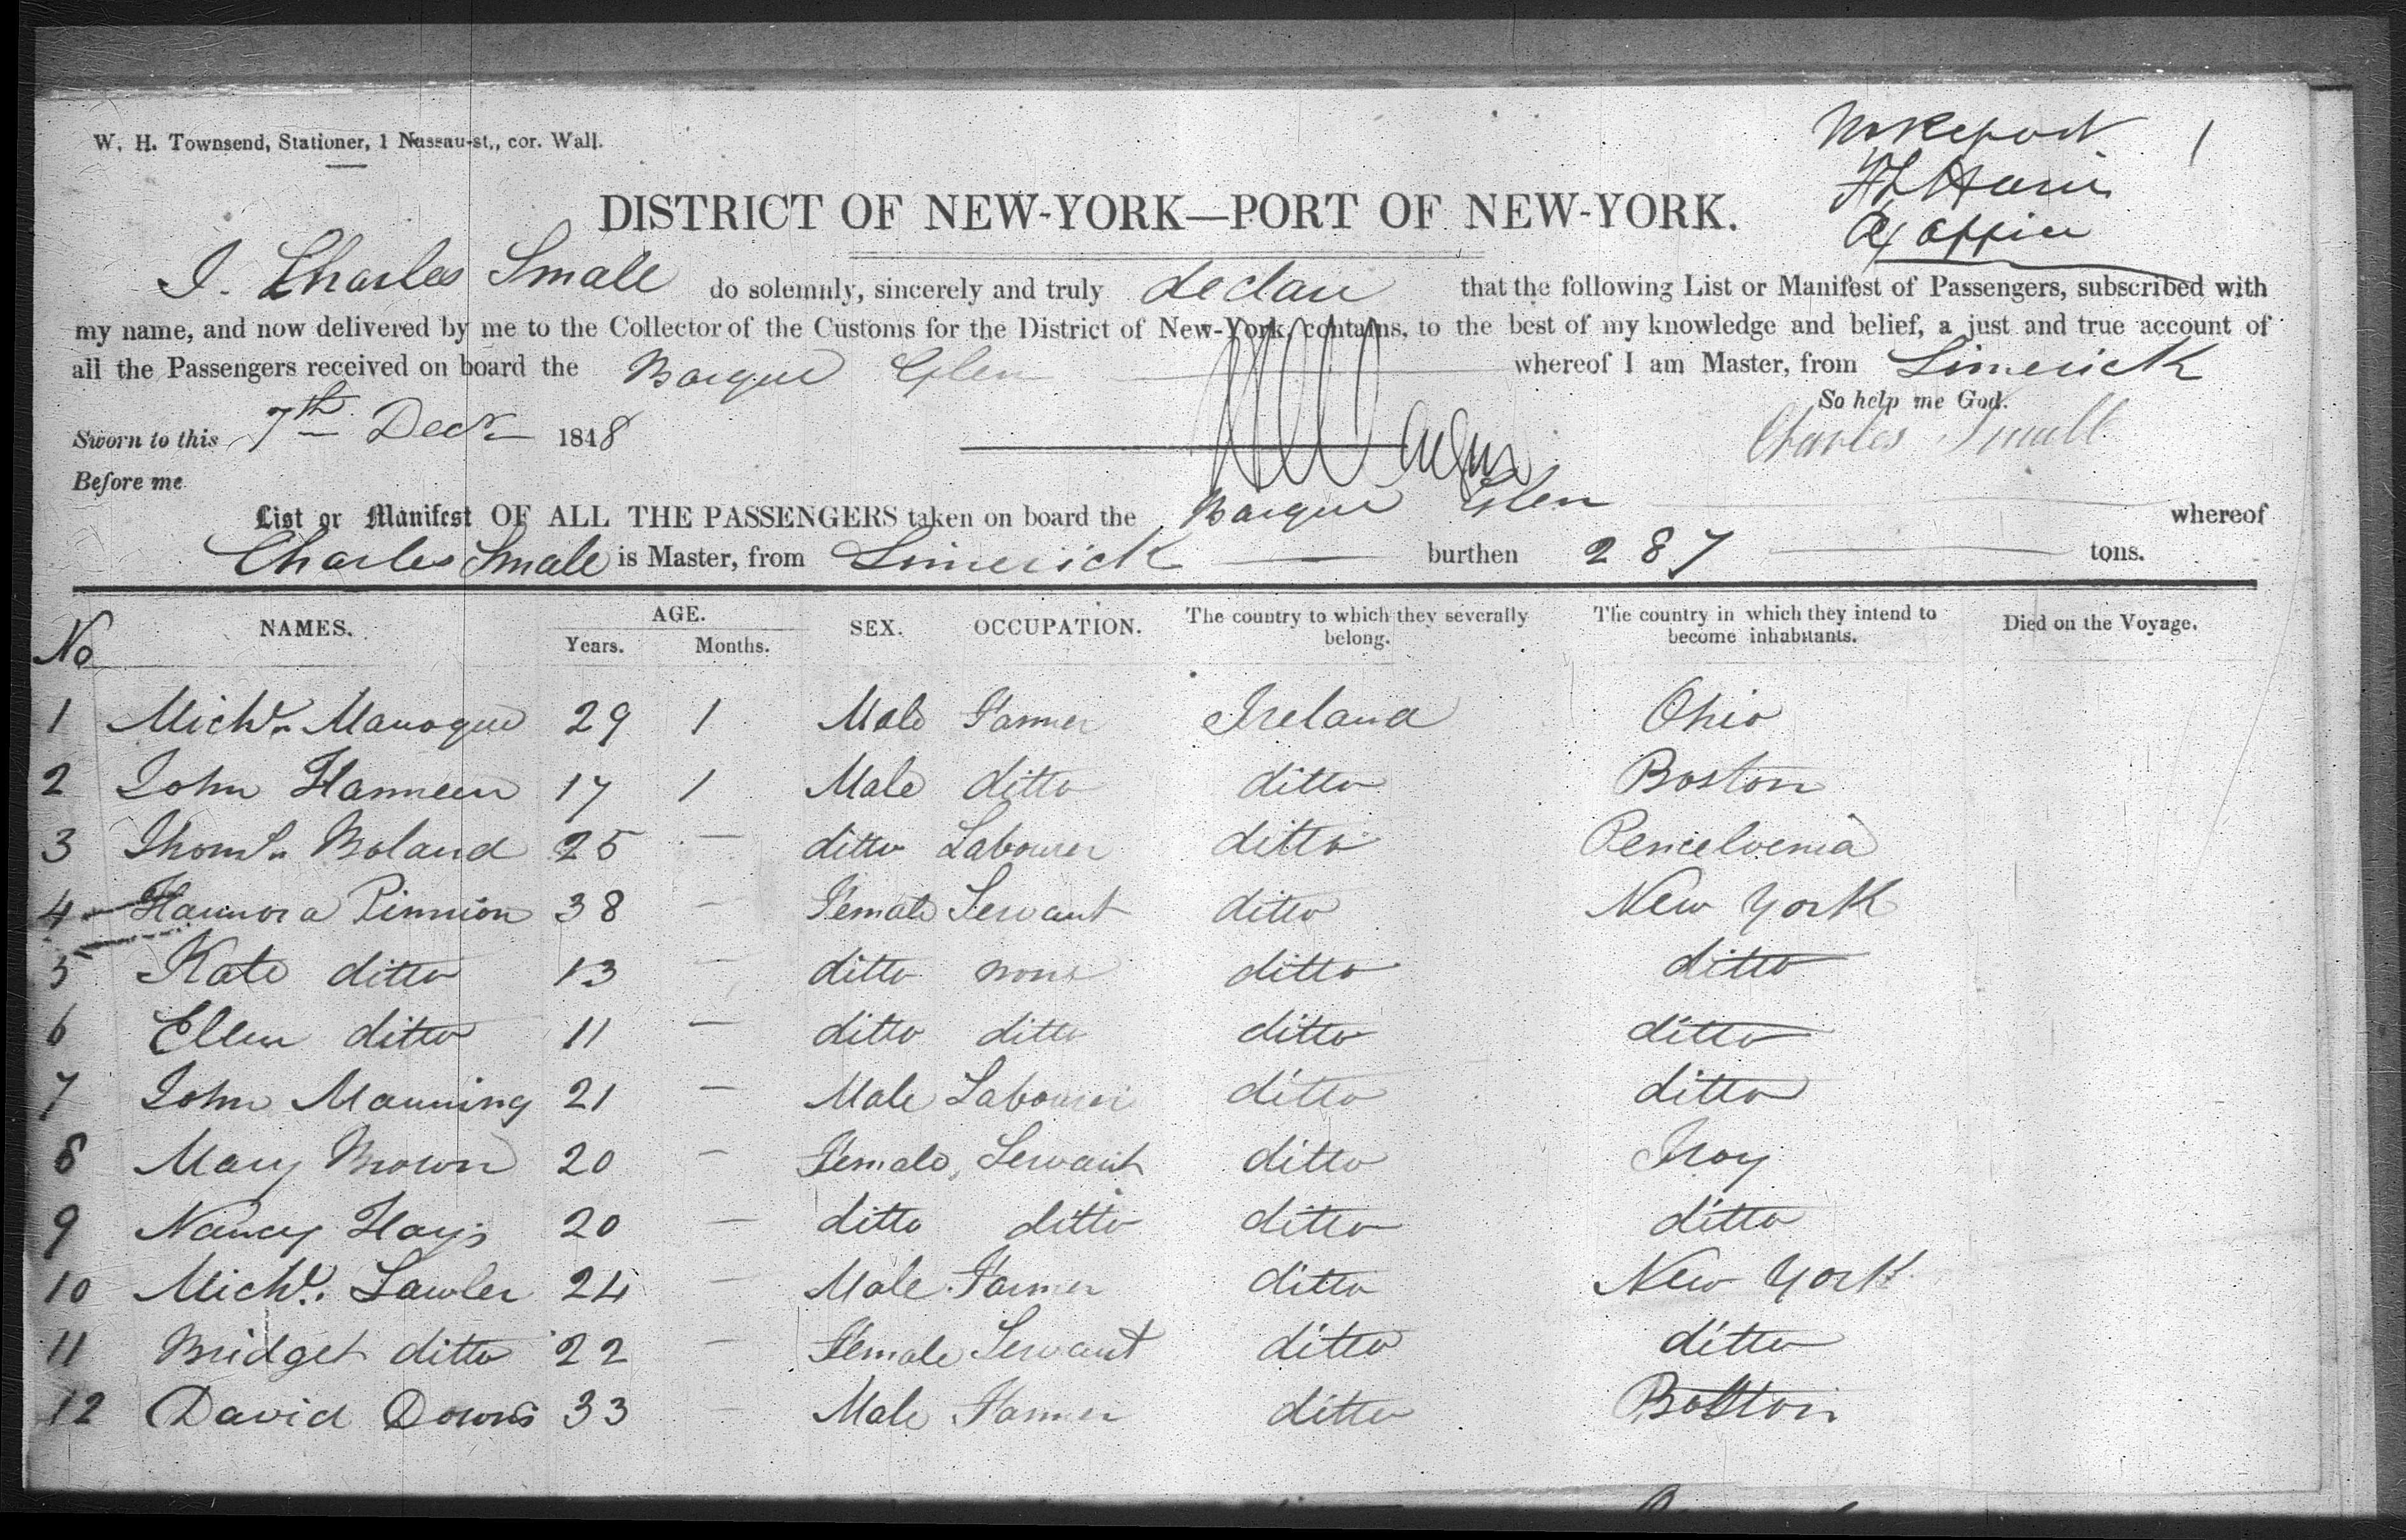 W. H. Townsend, Stationer, 1 Nassau-st., cor. Wall.
No Report 1
Office
DISTRICT OF NEW-YORK—PORT OF NEW-YORK.
I. Charles Smale do solemnly, sincerely and truly declare that the following List or Manifest of Passengers, subscribed with
my name, and now delivered by me to the Collector of the Customs for the District of New-York, contains, to the best of my knowledge and belief, a just and true account of
all the Passengers received on board the Barque Glen whereof I am Master, from Limerick
So help me God.
Sworn to this 7th Decr 1848 Charles Smale
Before me
List or Manifest OF ALL THE PASSENGERS taken on board the Barque Glen whereof
Charles Smale is Master, from Limerick burthen 287 tons.
No NAMES. AGE. Years. Months. SEX. OCCUPATION. The country to which they severally belong. The country in which they intend to become inhabitants. Died on the Voyage.
1 Michl. Manogue 29 1 Male Farmer Ireland Ohio
2 John Hanneen 17 1 Male ditto ditto Boston
3 Thoms. Boland 25 — ditto Labourer ditto Pencelvenia
4 Hannora Pinnion 38 — Female Servant ditto New York
5 Kate ditto 13 — ditto none ditto ditto
6 Ellen ditto 11 — ditto ditto ditto ditto
7 John Manning 21 — Male Labourer ditto ditto
8 Mary Brown 20 — Female Servant ditto Troy
9 Nancy Hays 20 — ditto ditto ditto ditto
10 Michl. Lawler 24 — Male Farmer ditto New York
11 Bridget ditto 22 — Female Servant ditto ditto
12 David Downs 33 — Male Farmer ditto Boston